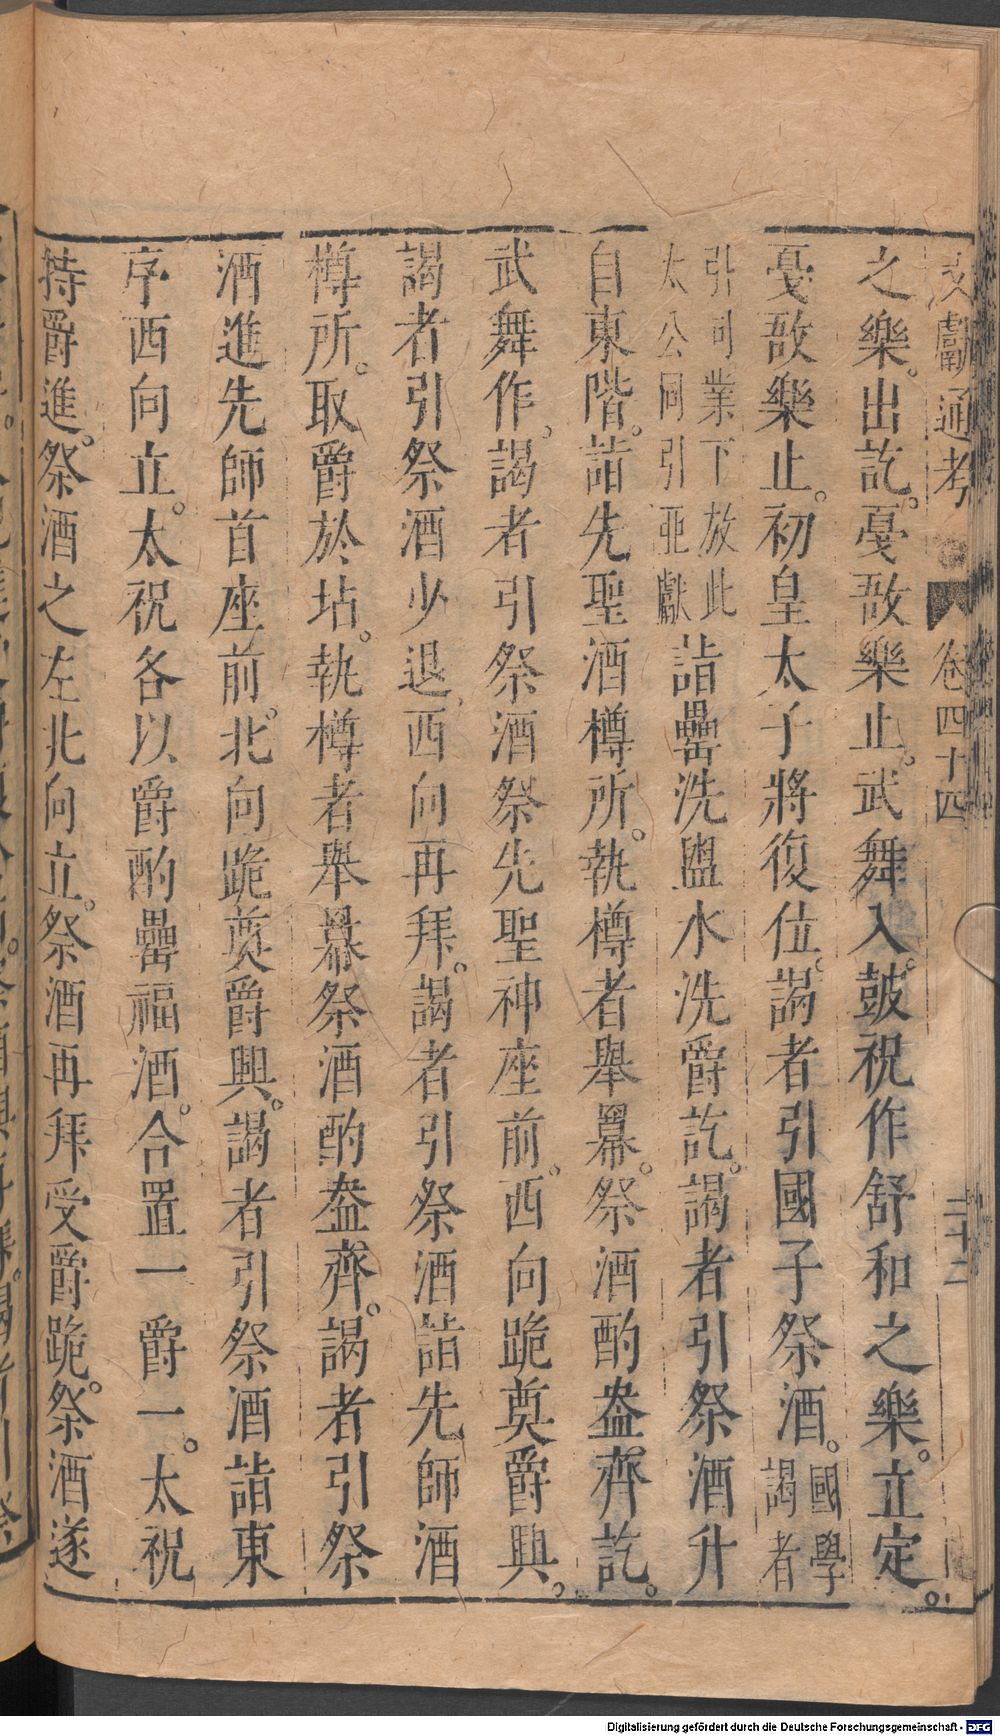 文獻通考 卷四十四 二十二
之樂。出訖。戞敔樂止。武舞入。鼓柷作舒和之樂。立定。
戞敔樂止。初皇太子將復位。謁者引國子祭酒。國學謁者
引司業下放此太公同引亞獻詣罍洗盥水洗爵訖。謁者引祭酒升
自東階。詣先聖酒樽所。執樽者舉羃。祭酒酌盎齊訖。
武舞作。謁者引祭酒祭先聖神座前。西向跪奠爵興。
謁者引祭酒少退、西向再拜。謁者引祭酒詣先師酒
樽所。取爵於坫。執樽者舉羃祭酒酌盎齊。謁者引祭
酒進先師首座前。北向跪奠爵興。謁者引祭酒詣東
序西向立。太祝各以爵酌罍福酒。合置一爵一。太祝
持爵進。祭酒之左北向立。祭酒再拜受爵跪。祭酒遂
Digitalisierung gefördert durch die Deutsche Forschungsgemeinschaft - DFG